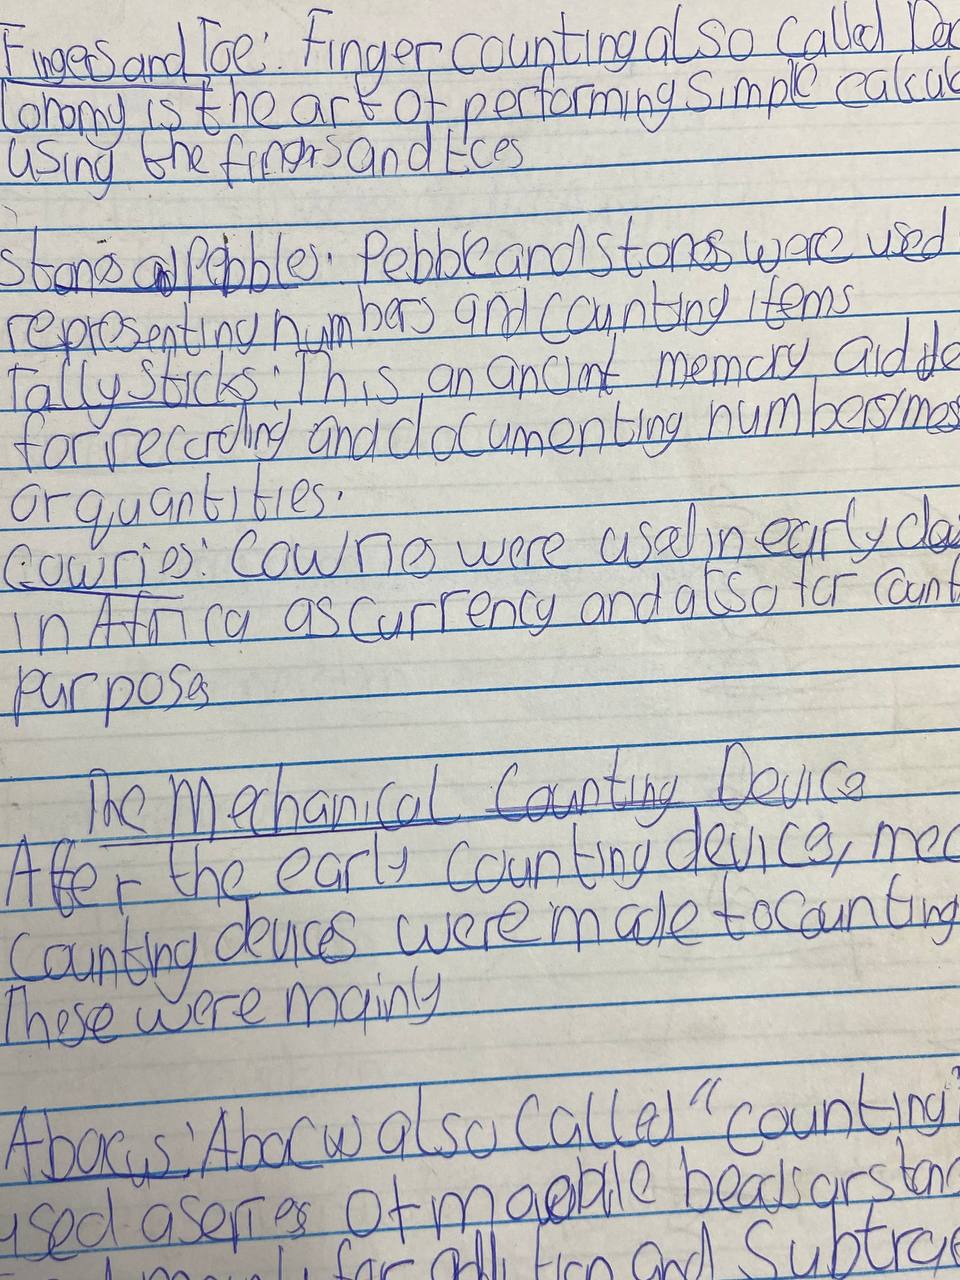 Fingers and Toe: Finger counting also called Dac
tonomy is the art of performing simple calcula
using the fingrs and toes
Stones and Pebbles: Pebble and stones were used
representing numbers and counting items
Tally Sticks: This an ancint memory aid de
for recording and documenting numbers/mes
or quantities.
Cowries: Cowries were used in early da
in Africa as currency and also for count
purposes
The Mechanical Counting Device
After the early counting devices, mec
counting devices were made to counting
These were mainly
Abacus: Abacus also called "counting"
used a series of moeable beads or ston
for addition and Subtrac